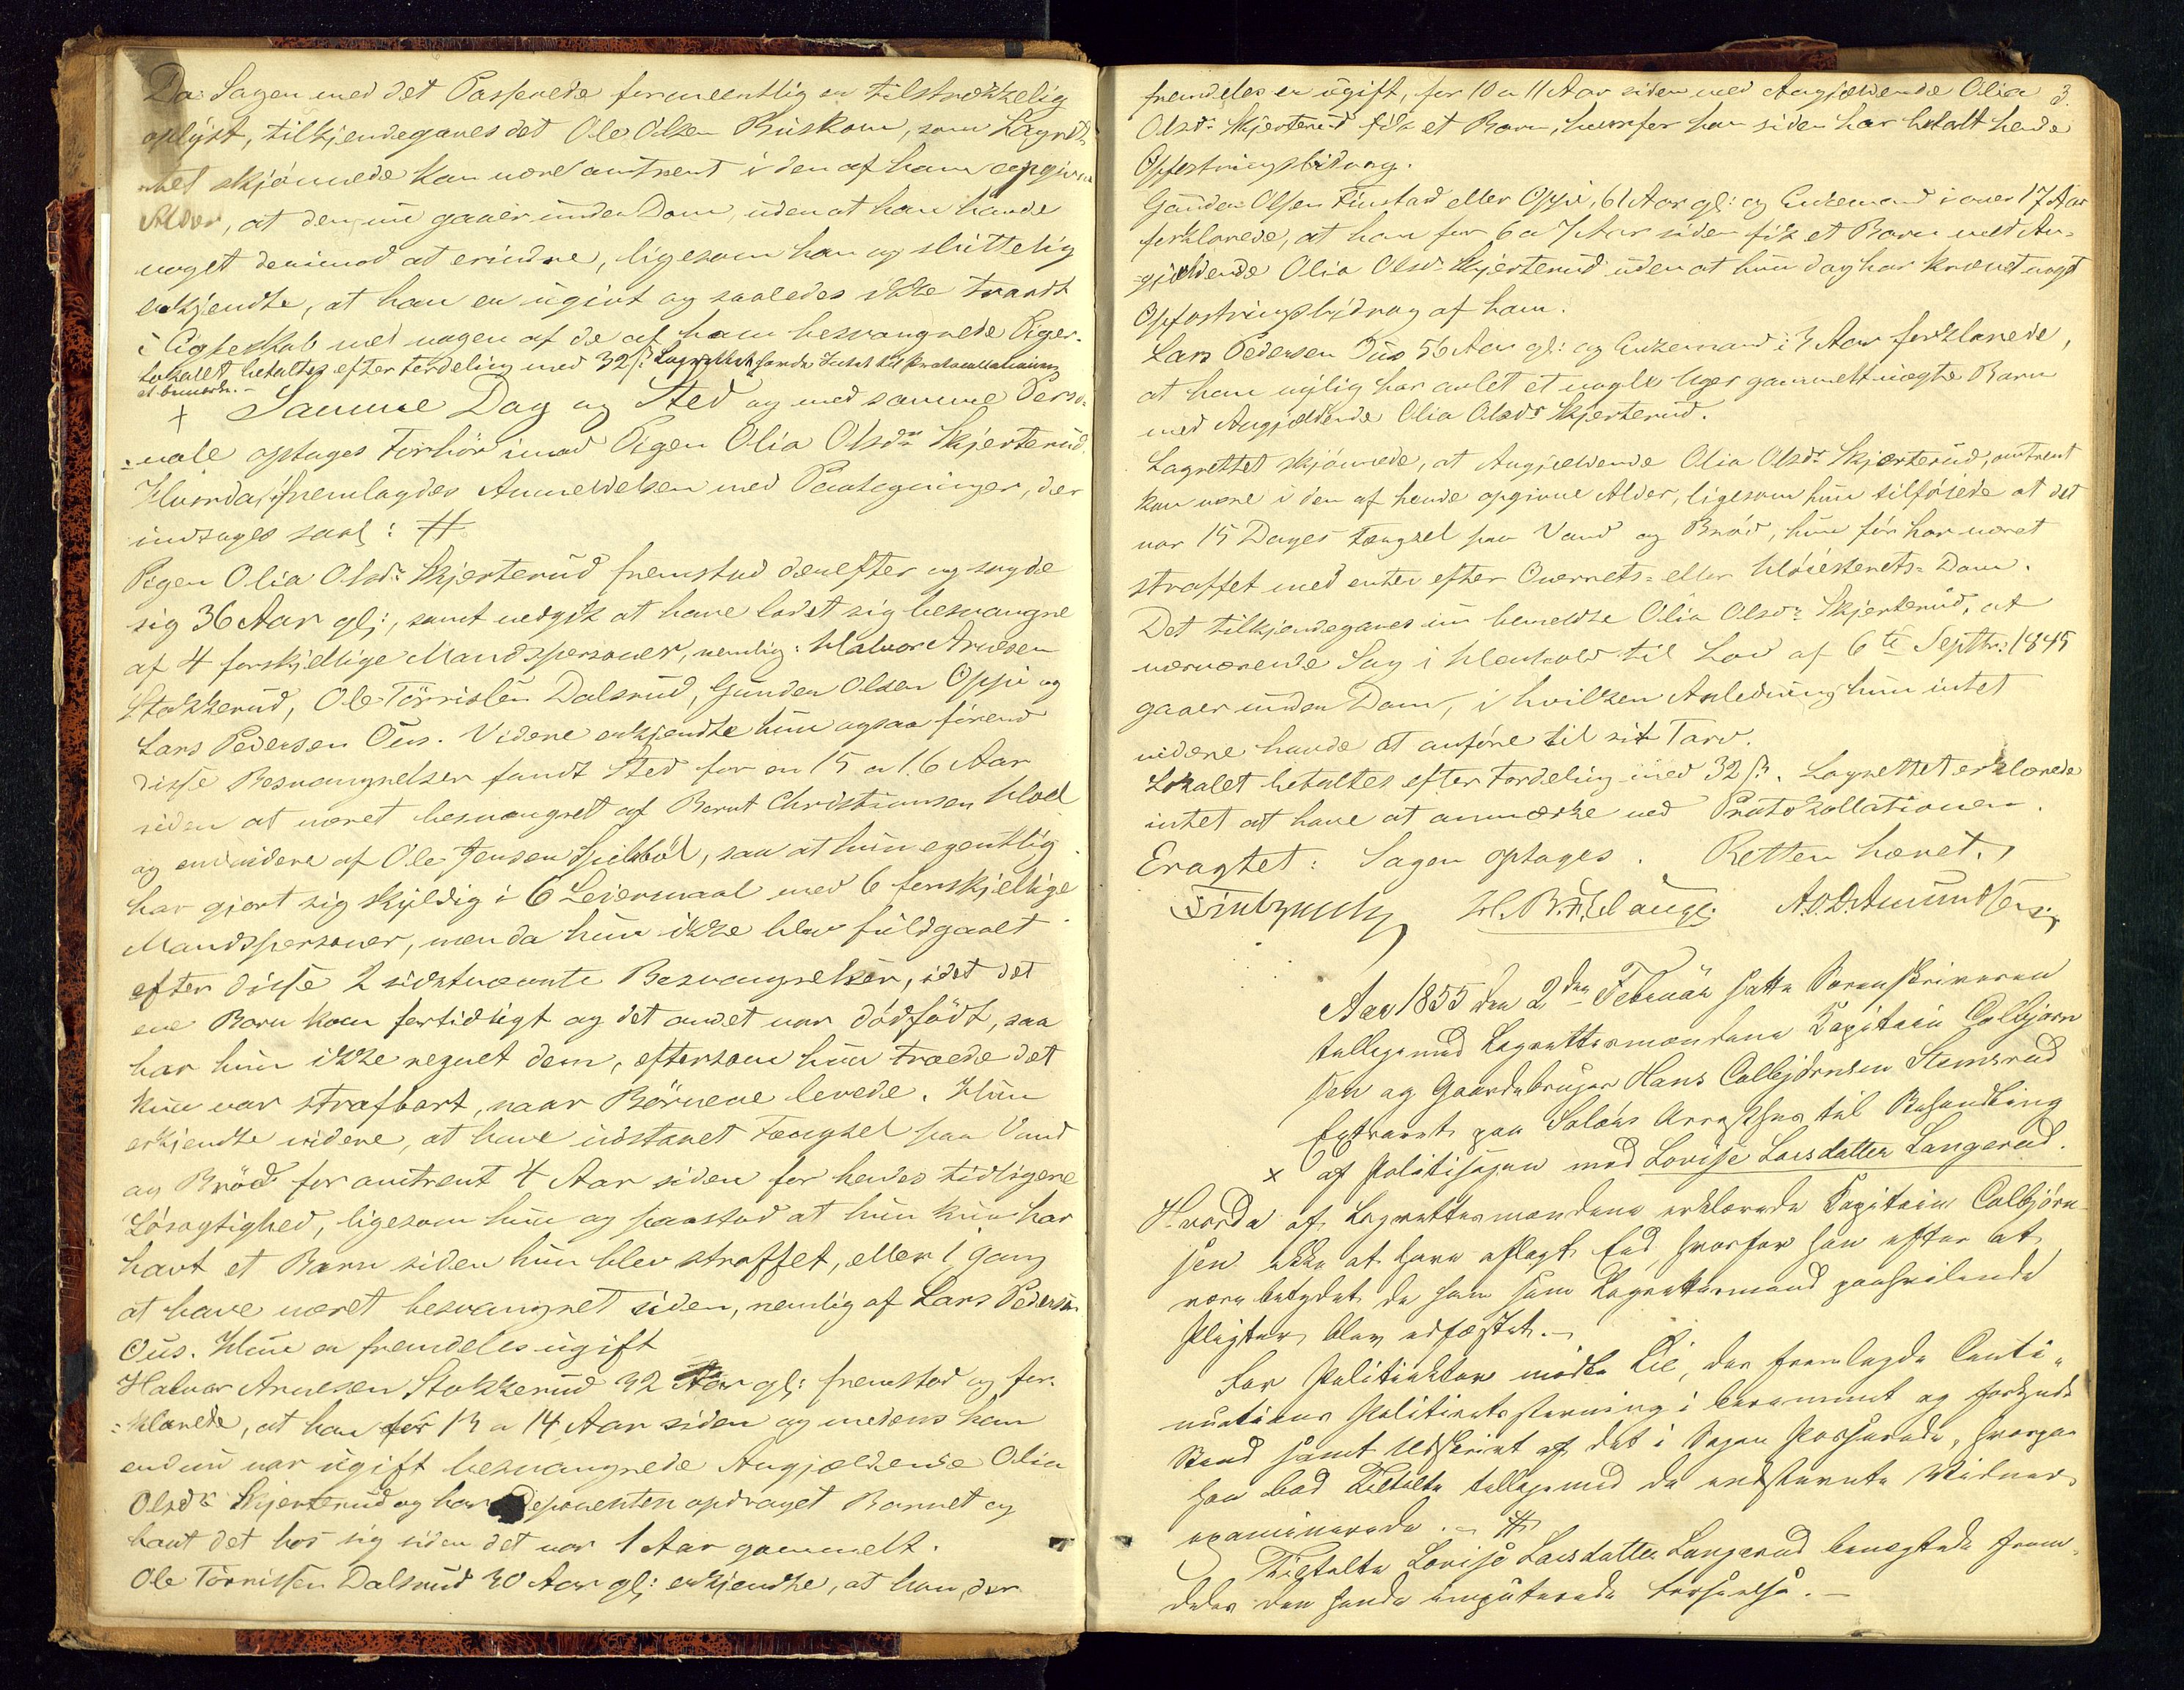 Da Sagen med det Passerede formeentlig er tilstrækkelig
oplyst, tilkjendegaves det Ole Olsen Buskom, som Lagret-
tet skjønnede kan være omtrent i den af ham opgivne
Alder, at den nu gaaer under Dom, uden at han havde
noget derimod at erindre, ligesom han og sluttelig
erkjendte, at han er ugivt og saaledes ikke traadt
i Ægteskab med nogen af de af ham besvangrede Piger.
Lokalet betaltes efter Fordeling med 32 ß. Lagrettet havde Intet til Protocollationen
at bemærke.-
+ Samme Dag og Sted og med samme Perso-
=nale optages Forhør imod Pigen Olia Olsdr Skjerterud.
Hvorda fremlagdes Anmeldelsen med Paategninger, der
indtages saal: #
Pigen Olia Olsdr Skjerterud fremstod derefter og sagde
sig 36 Aar gl:, samt vedgik at have ladet sig besvangre
af 4 forskjellige Mandspersoner, nemlig: Halvor Arnesen
Stokkerud, Ole Törrissen Dalsrud, Gunder Olsen Oppi og
Lars Pedersen Ous. Videre erkjendte hun ogsaa förend
disse Besvangrelser fandt Sted for en 15 a 16 Aar
siden at været besvangret af Bernt Christiansen Hoel
og endvidere af Ole Jensen, saa at hun egentlig
har gjort sig skyldig i 6 Leiermaal med 6 forskjellige
Mandspersoner, men da hun ikke blev fuldgaaet
efter disse 2 sidstnævnte Besvangrelser, idet det
ene Barn kom fortidligt og det andet var dödfödt, saa
har hun ikke regnet dem, eftersom hun troede det
kun var strafbart, naar Börnene levede. Hun
erkjendte videre, at have udstaaet Fængsel paa Vand
og Bröd for omtrent 4 Aar siden for hendes tidligere
Lösagtighed, ligesom hun og paastod at hun kun har
havt et Barn siden hun blev straffet, eller 1 Gang
at have været besvangret siden, nemlig af Lars Pedersen
Ous. Hun er fremdeles ugift
Halvor Arnesen Stokkerud 32 Aar gl: fremstod og for-
=klarede, at han for 13 a 14 Aar siden og medens han
endnu var ugift besvangrede Angjældende Olia
Olsdr Skjerterud og har Deponenten opdraget Barnet og
havt det hos sig siden det var 1 Aar gammelt.
Ole Törrissen Dalsrud 30 Aar gl: erkjendte, at han, der
3.
fremdeles er ugift, for 10 a 11 Aar siden med Angjældende Olia
Olsdr Skjerterud fik et Barn, hvorfor han siden har betalt hende
Opfostringsbidrag.
Gunder Olsen Finstad eller Oppi, 61 Aar gl: og Enkemand i over 17 Aar
forklarede, at han for 6 a 7 Aar siden fik et Barn med An-
gjældende Olia Olsdr Skjerterud uden at hun dog har krævet noget
Opfostringsbidrag af ham.
Lars Pedersen Ous 56 Aar gl: og Enkemand i 3 Aar forklarede,
at han nylig har avlet et nogle Uger gammelt uægte Barn
med Angjældende Olia Olsdr Skjerterud.
Lagrettet skjönnede, at Angjældende Olia Olsdr Skjerterud, omtrent
kan være i den af hende opgivne Alder, ligesom hun tilföiede at det
var 15 Dages Fængsel paa Vand og Bröd, hun för har været
straffet med enten efter Overrets- eller Höiesterets-Dom.
Det tilkjendegaves nu bemeldte Olia Olsdr Skjerterud, at
nærværende Sag i Henhold til Lov af 6te Septbr: 1845
gaaer under Dom, i hvilken Anledning hun intet
videre havde at anföre til sit Tarv.
Lokalet betaltes efter Fordeling med 32 ß. Lagrettet erklærede
intet at have at anmærke ved Protokollationen.
Eragtet: Sagen optages. Retten hævet.
A.O.D. Amundsen
Aar 1855 den 2den Februar satte Sorenskriveren
tilligemed Lagrettesmændene Kapitain Colbjørn
sen og Gaardbruger Hans Colbjørnsen Stemsrud
Extraret paa Soløers Arresthus til Behandling
x af Politisagen mod Lovise Larsdatter Langerud.
Hvorda af Lagrettesmændene erklærede Kapitain Colbjørn
sen ikke at have aflagt Eed hvorfor han efter at
være betydet de ham som Lagrettesmand paahvilende
Pligter blev edfæstet.-
For Politiaktor mødte Lie, der fremlagde Conti-
nuations Politiretsstevning i beramet og forkyndt
Stand samt Udskrivt af det i Sagen Passerede, hvorpaa
han bad Tiltalte tilligemed de indstevnte Vidner
examinerede.- #
Tiltalte Lovise Larsdatter Langerud benægtede frem-
deles den hende imputerede Forseelse.-